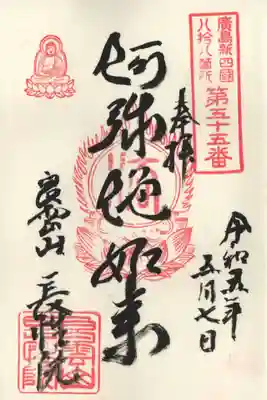 廣島新四國
八拾八箇所
第五十五番
奉拝
令和五年
五月七日
阿弥陀如来
長性院